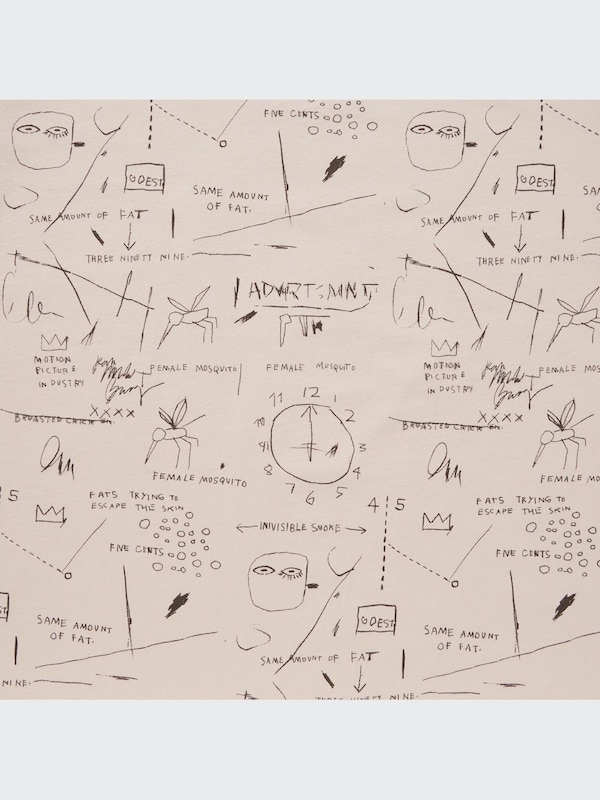 FIVE CENTS
ODEST
ODEST
SAME AMOUNT
OF FAT.
SAME AMOUNT OF FAT
SAME AMOUNT OF FAT
THREE NINETY NINE.
THREE NINETY NINE.
ADVRTSMNT
MOTION
PICTURE
IN DUSTRY
FEMALE MOSQUITO
FEMALE MOSQUITO
MOTION
PICTURE
IN DUSTRY
XXXX
XXXX
11 12 1
10 2
9 3
8 4
7 6 5
FEMALE MOSQUITO
5
4 5
FATS TRYING TO
ESCAPE THE SKIN
FATS TRYING TO
ESCAPE THE SKIN
INIVISIBLE SMOKE
FIVE CENTS
FIVE CENTS
ODEST
SAME AMOUNT
OF FAT.
SAME AMOUNT
OF FAT.
SAME AMOUNT OF FAT
NINE.